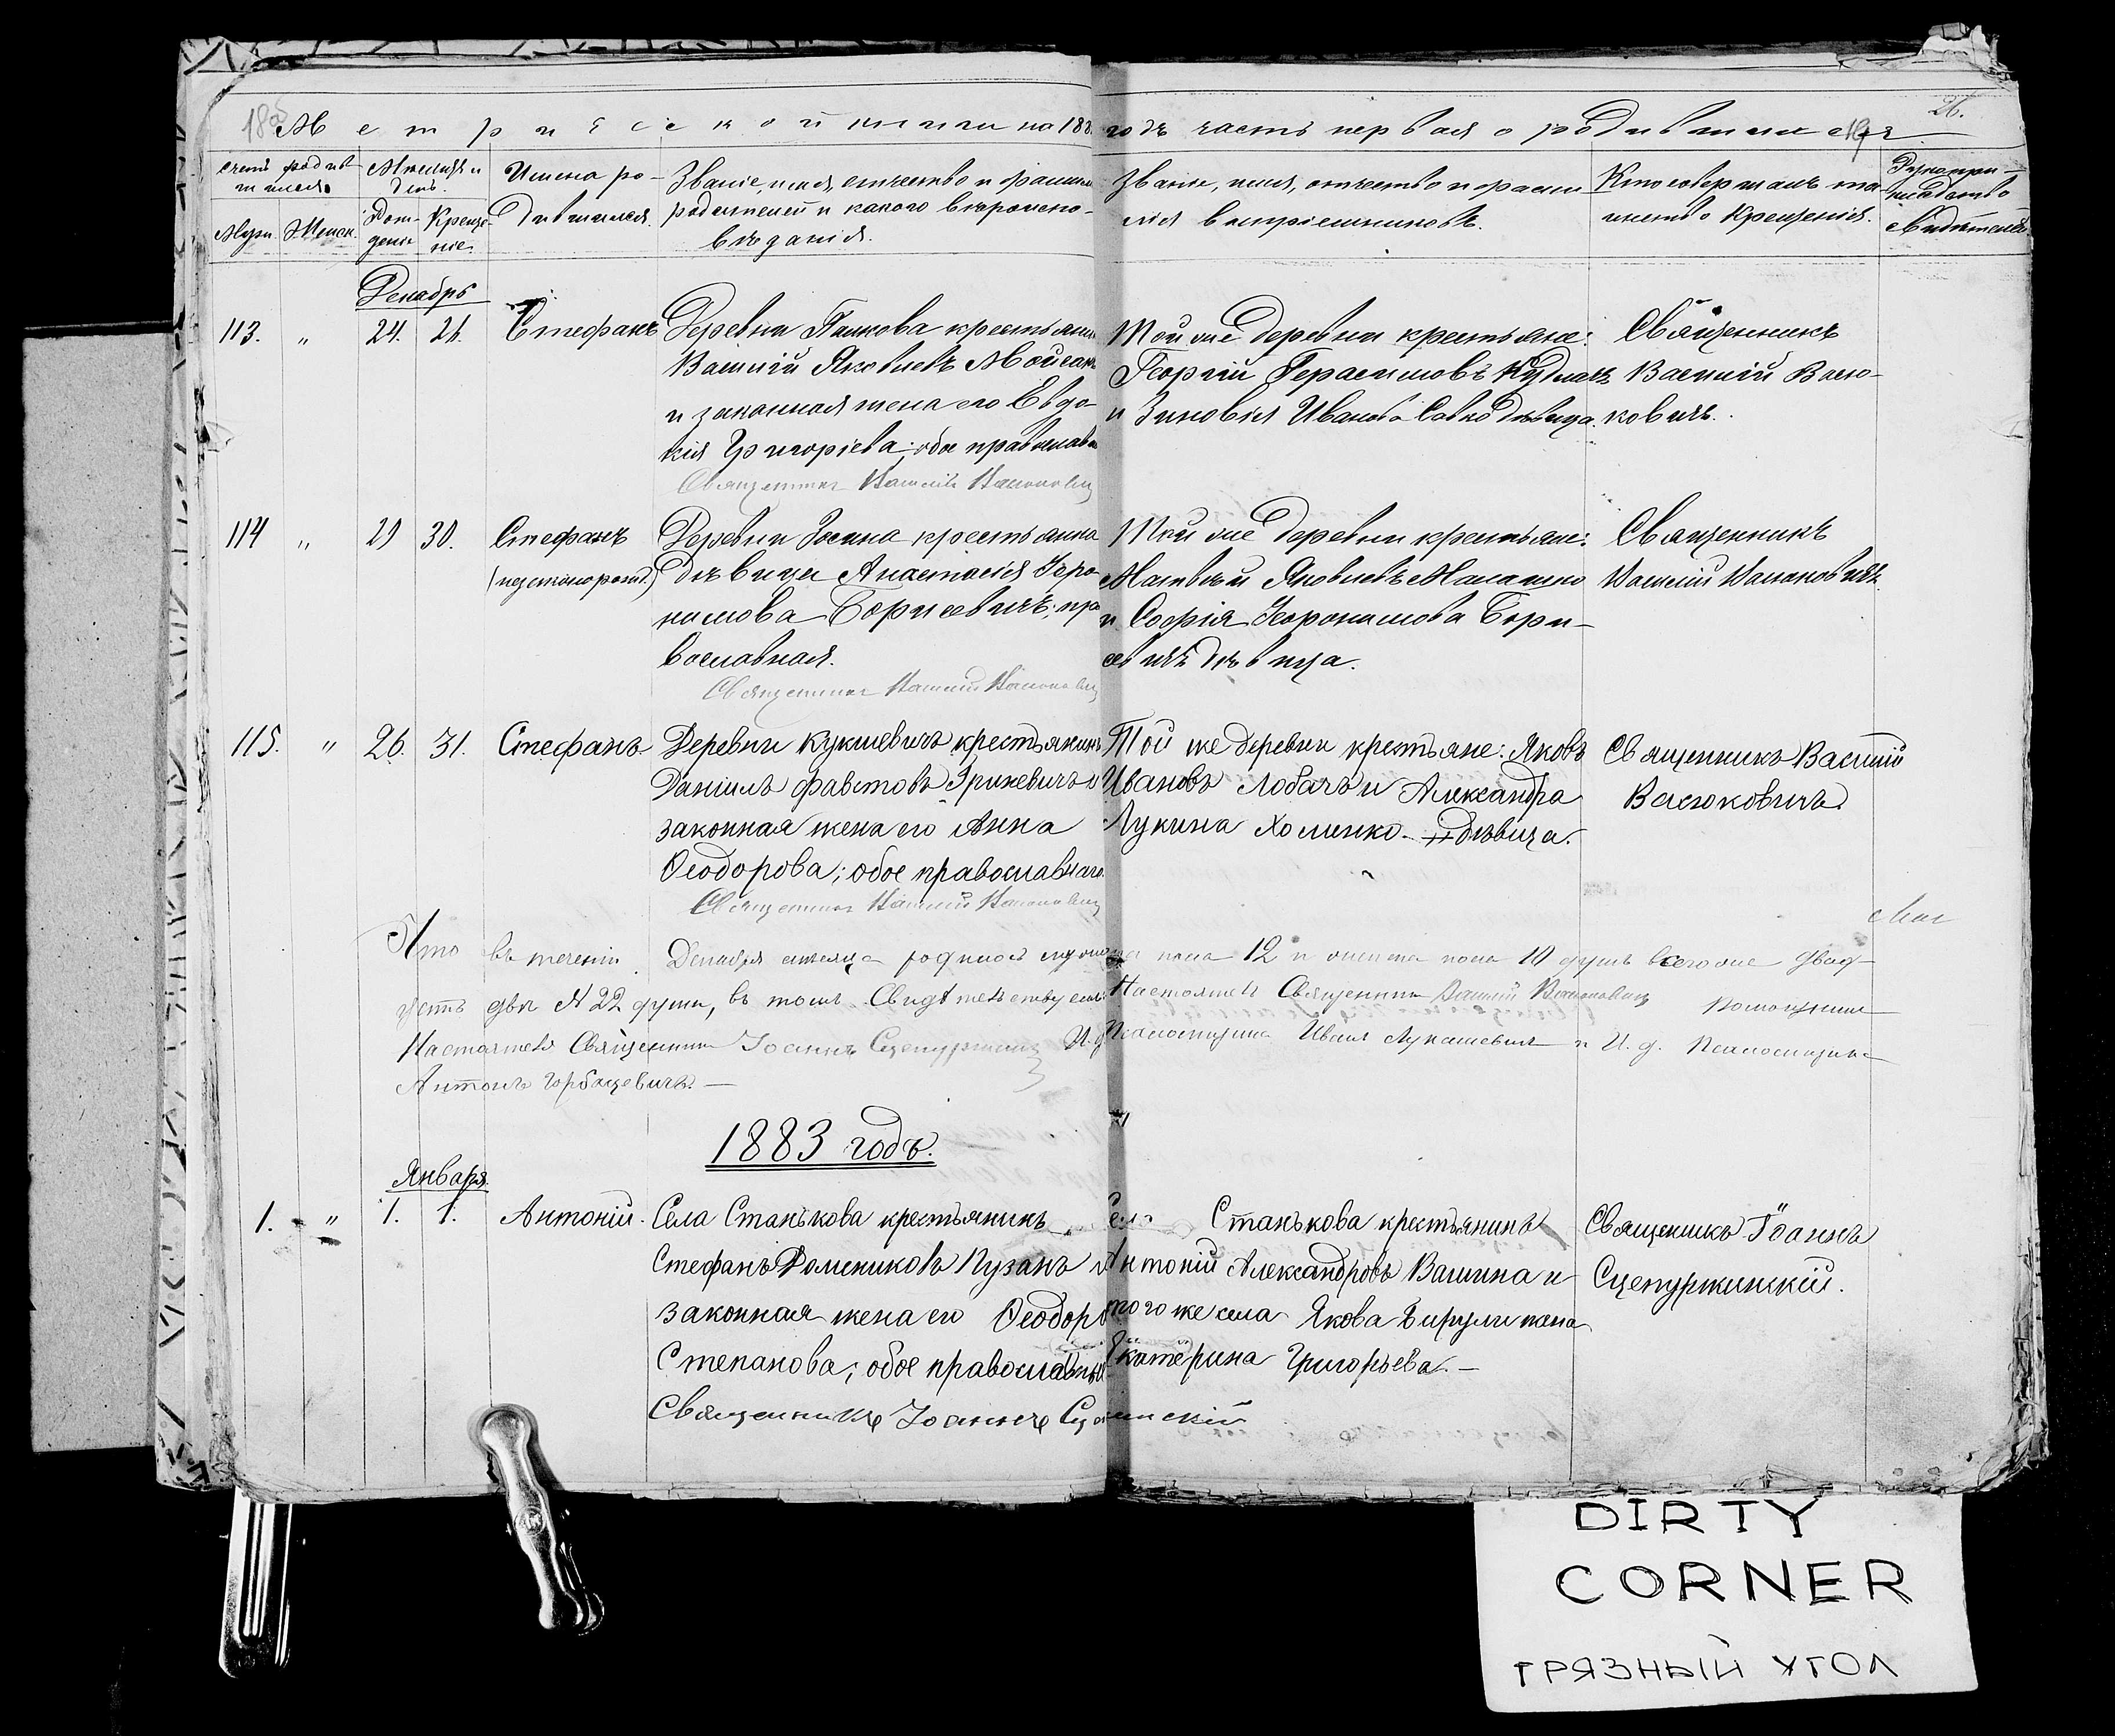 26.
Метрической книги на 188 годъ часть первая о родившихся
Счетъ родившихся.
Мѣсяцъ и день.
Имена родившихся.
Званіе, имя, отчество и фамилія родителей и какого вѣроисповѣданія.
Званіе, имя, отчество и фамилія воспріемниковъ.
Кто совершалъ таинство Крещенія.
Рукоприкладство свидѣтелей.
Муж. Женск. Рожденіе Крещеніе
Декабрь
113. " 24. 26. Стефанъ
Деревни крестьянинъ
Василій Яковлевъ Мойсакъ
и законная жена его Евдо-
кія Григоріева; обое православн
Священникъ Василій Васюковичъ
Той же деревни крестьяне:
Георгій Герасимовъ Кудлачъ
и Зиновія Иванова Савко дѣвица.
Священникъ
Василій Васю-
ковичъ.
114 " 29 30. Стефанъ
(незаконорожд.)
Деревни крестьянка
дѣвица Анастасія Іеро-
нимова Борисевичъ; пра
вославная.
Священникъ Василій Васюковичъ
Той же деревни крестьяне:
Матвѣй Яковлевъ
и Софія Іеронимова Бори-
севичъ дѣвица.
Священникъ
Василій Васюковичъ.
115. " 26. 31. Стефанъ
Деревни Кукшевичъ крестьянинъ
Даніилъ Фавстовъ Гриневичъ и
законная жена его Анна
Ѳеодорова; обое православнаго.
Священникъ Василій Васюковичъ
Той же деревни крестьяне: Яковъ
Ивановъ Лобачъ и Александра
Лукина Хоменко дѣвица.
Священникъ Василій
Васюковичъ.
Что въ теченіи Декабря мѣсяца родилось мужеска пола 12 и женска пола 10 душъ всего же двад-
цать двѣ № 22 души, въ томъ свидѣтельствуемъ: Настоятель Священникъ Василій Васюковичъ Помощникъ
Настоятеля Священникъ Іоаннъ Сцепуржинскій И. д. Псаломщика Иванъ Лукашевичъ и И. д. Псаломщика
Антонъ Горбацевичъ. —
1883 годъ.
Января
1. " 1. 1. Антоній.
Села Станькова крестьянинъ
Стефанъ Доминиковъ Пузанъ и
законная жена его Ѳеодора
Степанова; обое православны
Священникъ Іоаннъ Сцепуржинскій
Села Станькова крестьянинъ
Антоній Александровъ Вашина и
того же села Якова Бирули жена
Екатерина Григорьева. —
Священникъ Іоаннъ
Сцепуржинскій.
DIRTY
CORNER
ГРЯЗНЫЙ УГОЛ